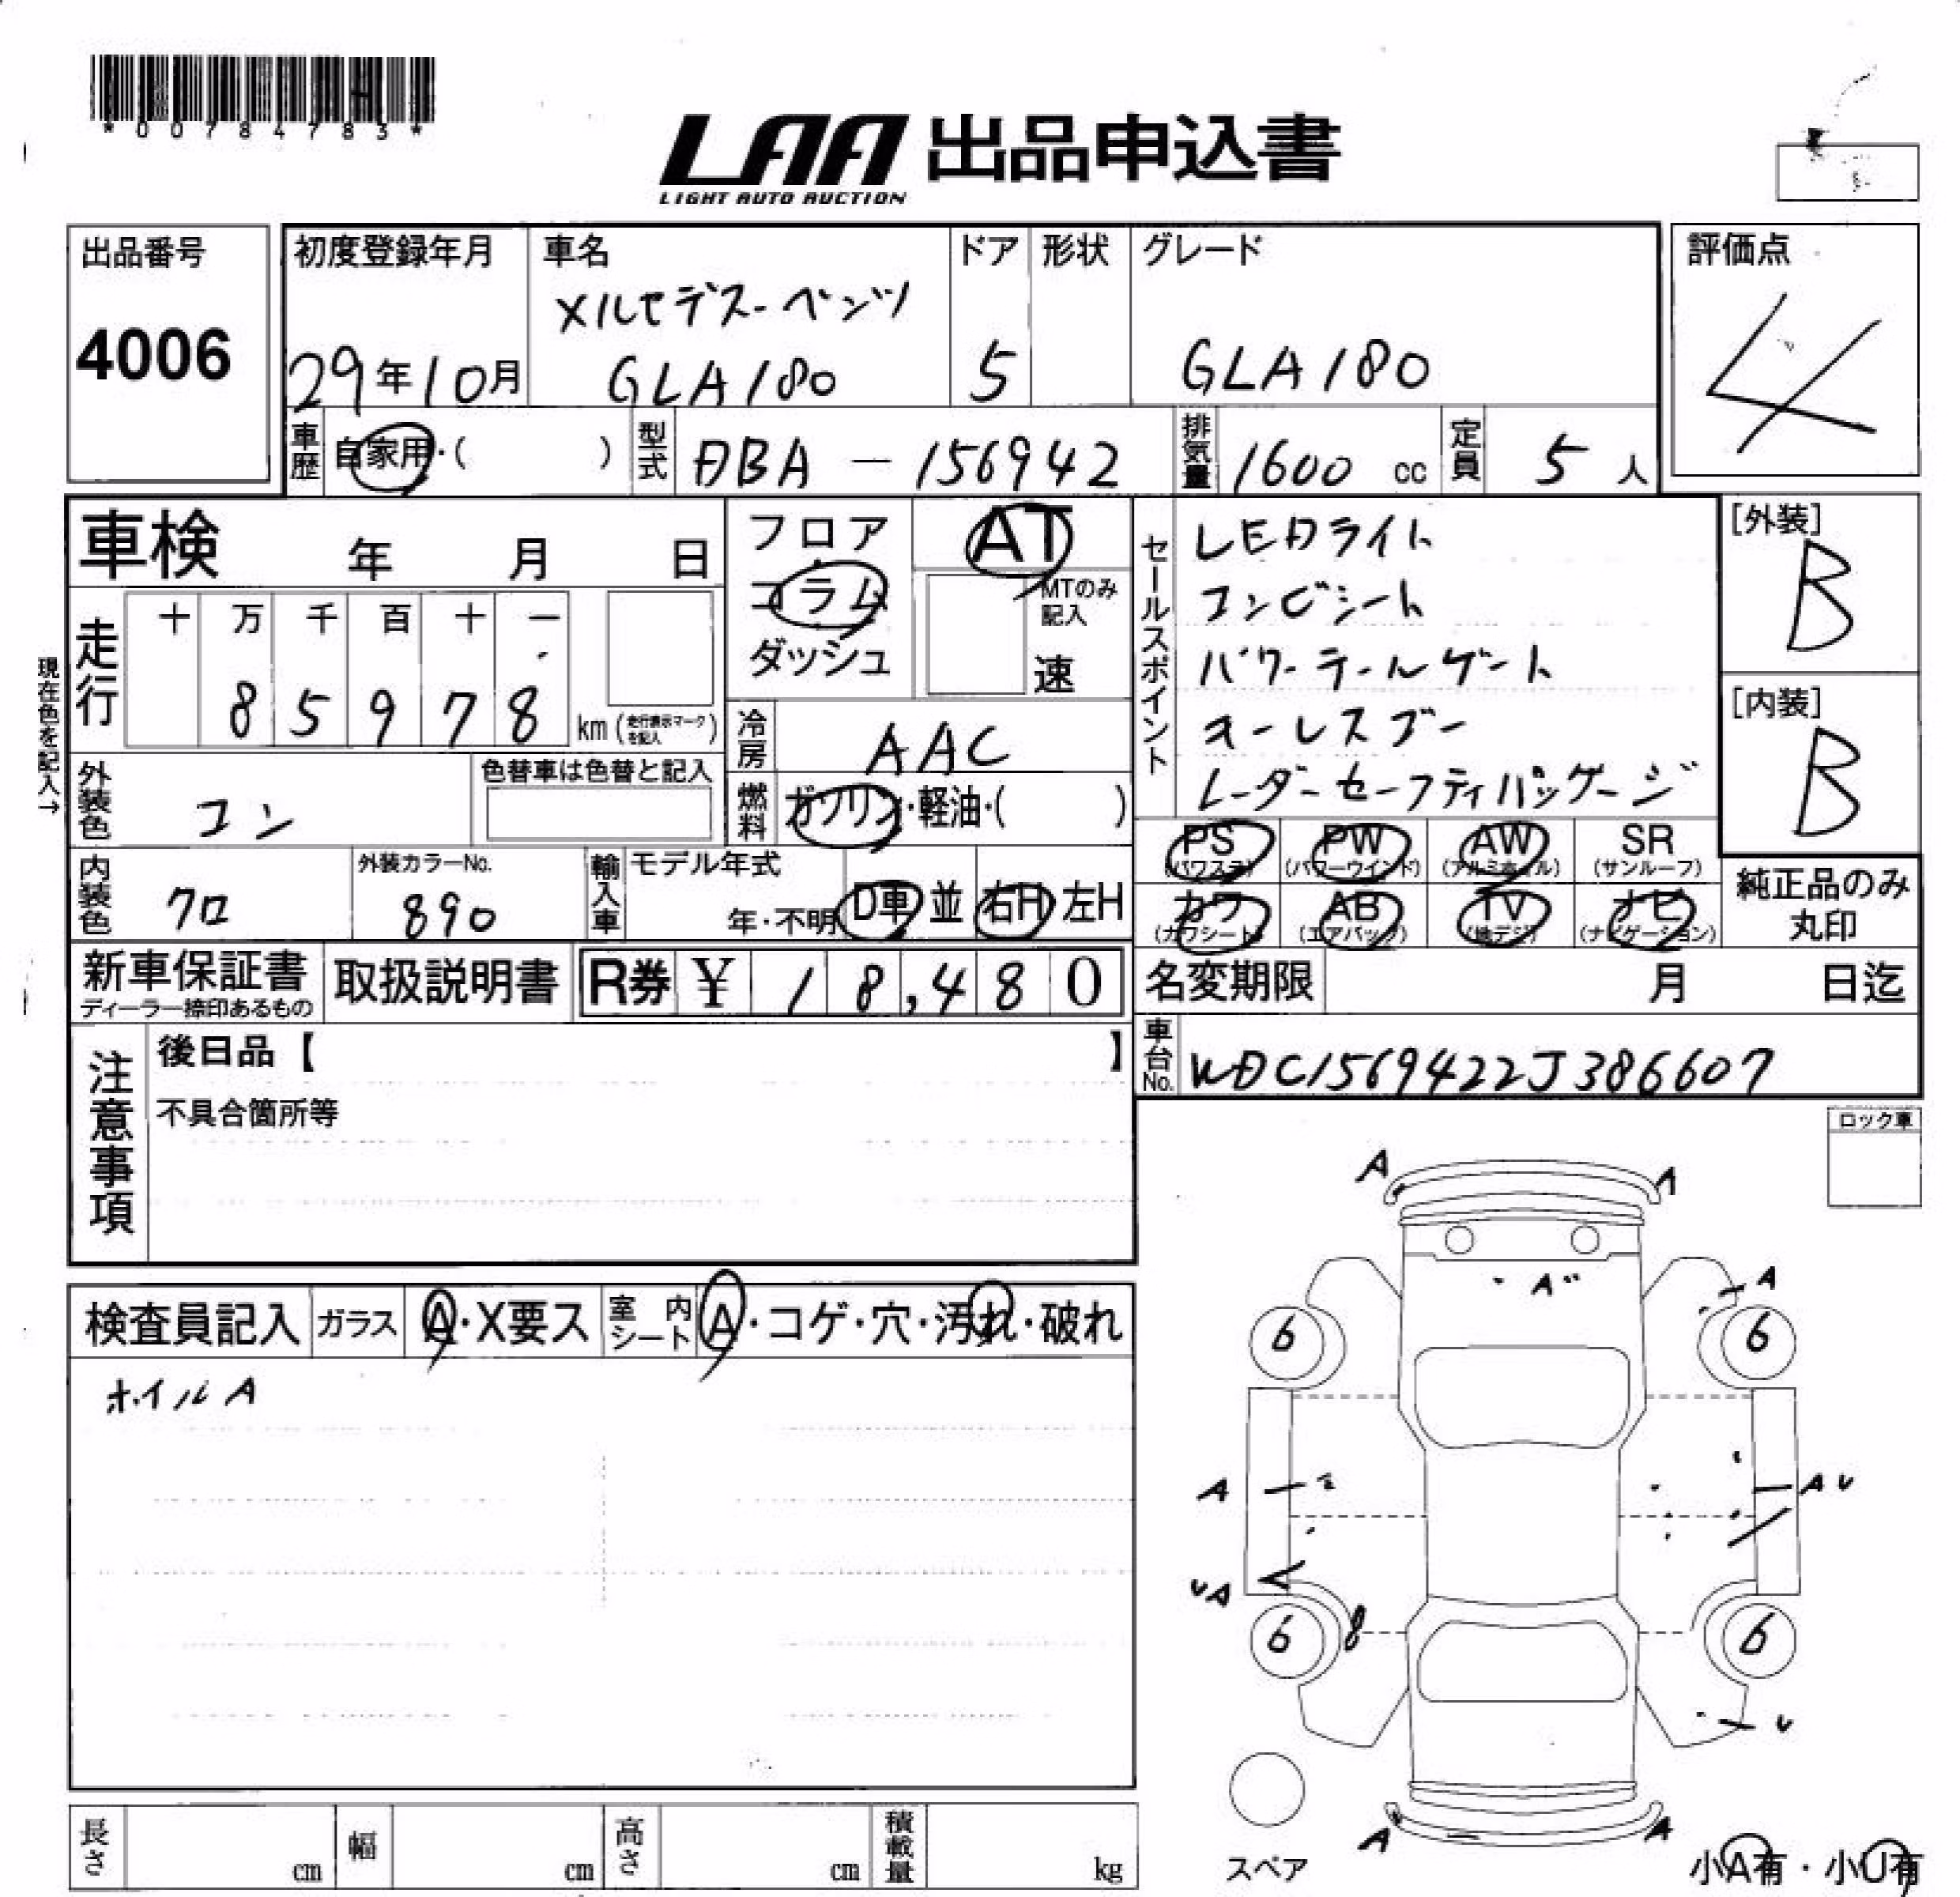 *00784783*
LAA 出品申込書
LIGHT AUTO AUCTION
出品番号
4006
初度登録年月
29年10月
車名
メルセデスーベンツ
GLA180
ドア
5
形状
グレード
GLA180
評価点
4
車歴 自家用・( )
型式 DBA－156942
排気量 1600 cc
定員 5 人
車検 年 月 日
フロア
コラム
ダッシュ
AT
MTのみ
記入
速
現在色を記入→
走行
十 万 千 百 十 一
8 5 9 7 8
km (走行表示マークを記入)
冷房 AAC
外装色 コン
色替車は色替と記入
燃料 ガソリン・軽油・( )
内装色 クロ
外装カラーNo.
890
輸入車 モデル年式
年・不明
D車 並 右H 左H
セールスポイント
LEDライト
コンビシート
パワーテールゲート
キーレスゴー
レーダーセーフティパッケージ
[外装]
B
[内装]
B
PS (パワステ)
PW (パワーウインド)
AW (アルミホイル)
SR (サンルーフ)
カワ (カワシート)
AB (エアバッグ)
TV (地デジ)
ナビ (ナビゲーション)
純正品のみ
丸印
新車保証書
ディーラー捺印あるもの
取扱説明書
R券 ¥ 18,480
名変期限 月 日迄
車台No. WDC1569422J386607
注意事項
後日品【 】
不具合箇所等
ロック車
検査員記入
ガラス A・X要ス
室内シート A・コゲ・穴・汚れ・破れ
ホイルA
A A
A
A
6 6
A A U
U A
6 8 6
U
A A
スペア
小A有・小U有
長さ cm
幅 cm
高さ cm
積載量 kg